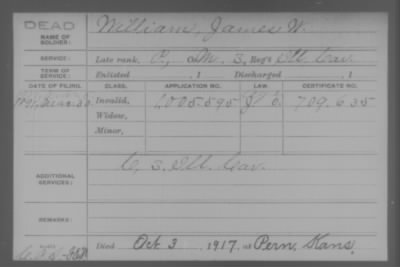 DEAD
NAME OF SOLDIER: William, James W.
SERVICE: Late rank, P, Co. M. 3, Reg't Ill Cav.
TERM OF SERVICE: Enlisted , 1 Discharged , 1
DATE OF FILING. CLASS. APPLICATION NO. LAW. CERTIFICATE NO.
1891, Mar 30 Invalid, 1,005.595 709.635
Widow,
Minor,
ADDITIONAL SERVICES: C, 3 Ill Cav.
REMARKS:
Died Oct 3, 1917, at Peru, Kans.